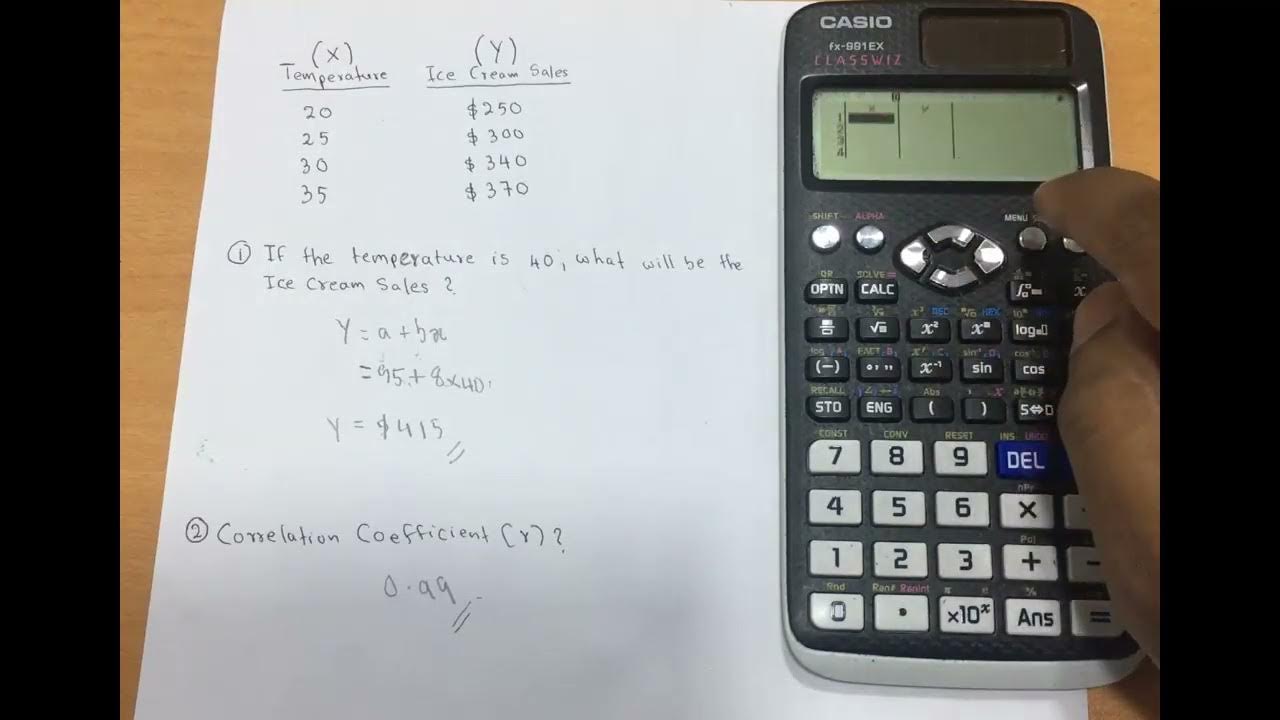 (X) (Y)
Temperature Ice Cream Sales
20 $250
25 $300
30 $340
35 $370
① If the temperature is 40, what will be the
Ice Cream Sales ?
Y = a + bx
= 95 + 8×40
Y = $415
② Correlation Coefficient (r) ?
0.99
CASIO
fx-991EX
CLASSWIZ
x y
1
2
3
4
SHIFT ALPHA MENU
QR SOLVE =
OPTN CALC
√ x² log
(−) x⁻¹ sin cos
RECALL Abs
STO ENG ( ) S⇔D
CONST CONV RESET INS
7 8 9 DEL
nPr
4 5 6 ×
Pol
1 2 3 + −
Rnd Ran# RanInt π e %
0 . ×10ˣ Ans =